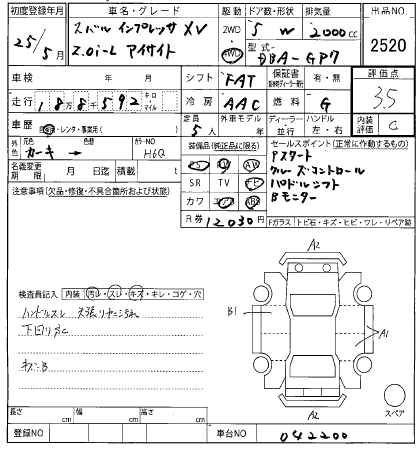 初度登録年月 車名・グレード 駆動 ドア数・形状 排気量 出品NO.
25年5月 スバル インプレッサ XV 2WD 4WD 5 W 2000cc 2520
2.0i-L アイサイト 型式 DBA-GP7
車検 年 月 シフト FAT 保証書 有・無 評価点
走行 188592 キロ・マイル 冷房 AAC 燃料 G 3.5
車歴 自家・レンタ・事業用( ) 定員 5人 外車モデル 年 ディーラー・並行 ハンドル 左・右 内装評価 C
外色 元色 カーキ → 色替 カラーNO H6Q 装備品(純正品に限る) セールスポイント(正常に作動するもの)
名義変更期限 月 日 積載 t PS PW AW Pスタート
注意事項(欠品・修復・不具合箇所および状態) SR TV ナビ クルーズコントロール
カワ エアB ABS パドルシフト
R券 12030円 Bモニター
Fガラス トビ石・キズ・ヒビ・ワレ・リペア跡
A2
検査員記入 内装 汚れ・スレ・キズ・キレ・コゲ・穴
ハンドルスレ 天張りヤニ汚れ B1
下回りサビ A1
キズB
A2 スペア
長さ cm 幅 cm 高さ cm
登録NO 車台NO 042200